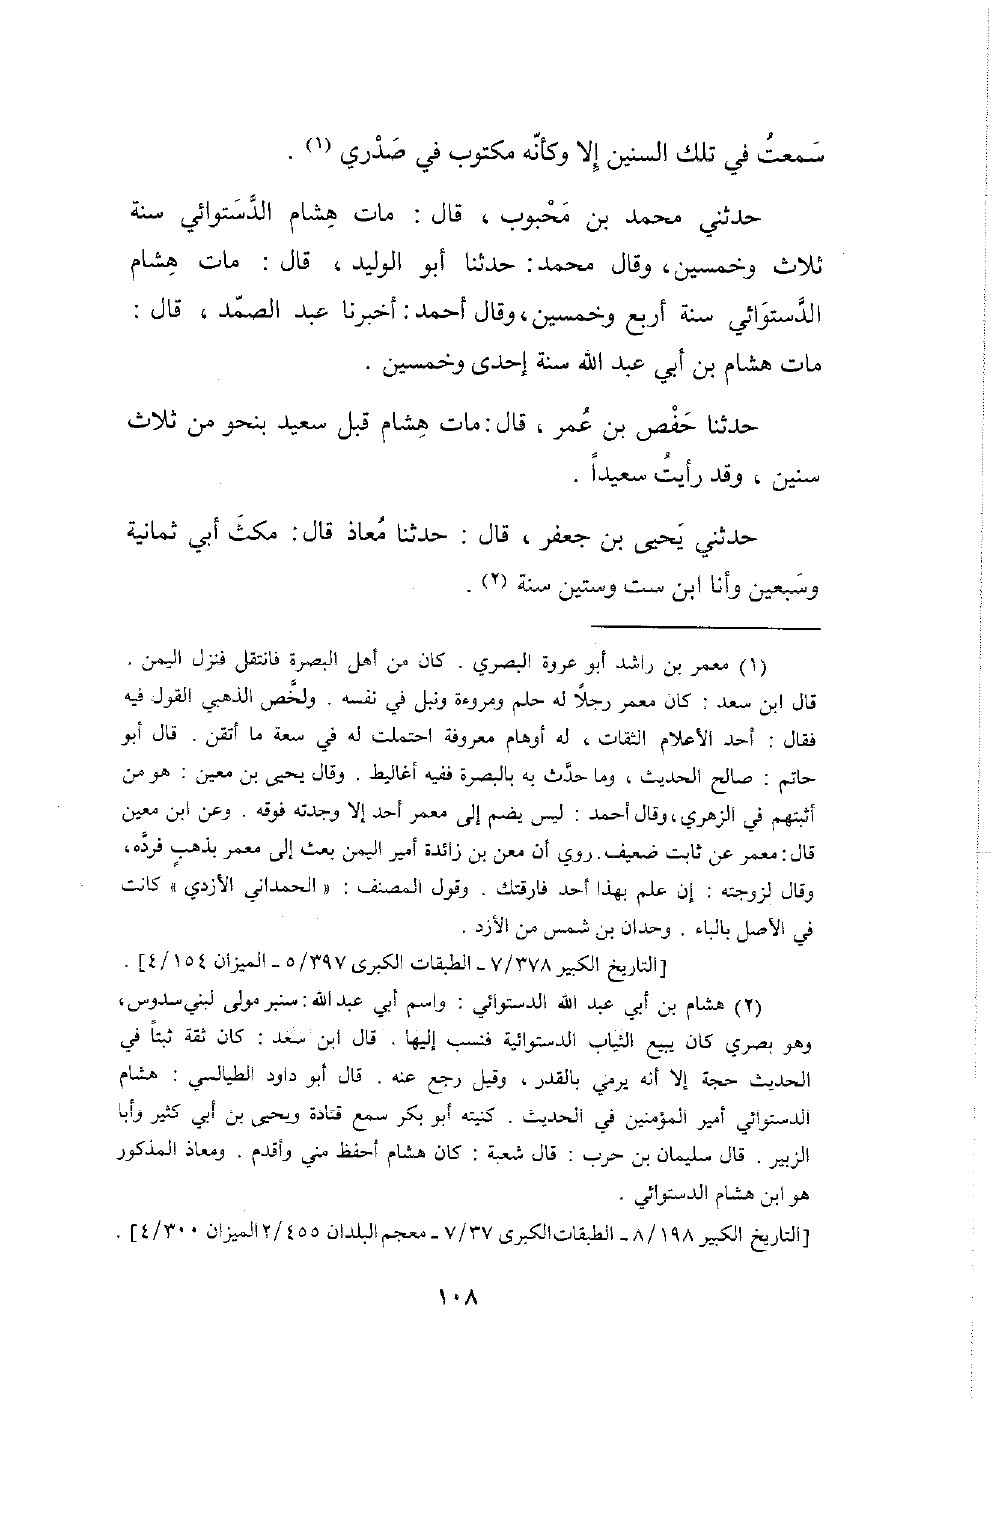 سَمعتُ في تلك السنين إِلا وكأنّه مكتوب في صَدْري (١) .
حدثني محمد بن مَحْبوب ، قال : مات هِشام الدَّسَتوائي سنة
ثلاث وخمسين، وقال محمد: حدثنا أبو الوليد ، قال : مات هِشام
الدَّستوَائي سنة أربع وخمسين، وقال أحمد: أخبرنا عبد الصمّد ، قال :
مات هشام بن أبي عبد الله سنة إحدى وخمسين .
حدثنا حَفْص بن عُمر ، قال: مات هِشام قبل سعيد بنحو من ثلاث
سنين ، وقد رأيتُ سعيداً .
حدثني يَحيى بن جعفر ، قال : حدثنا مُعاذ قال: مكثَ أبي ثمانية
وسَبعين وأنا ابن ست وستين سنة (٢) .
(١) معمر بن راشد أبو عروة البصري . كان من أهل البصرة فانتقل فنزل اليمن .
قال ابن سعد : كان معمر رجلاً له حلم ومروءة ونبل في نفسه . ولخَّص الذهبي القول فيه
فقال : أحد الأعلام الثقات ، له أوهام معروفة احتملت له في سعة ما أتقن . قال أبو
حاتم : صالح الحديث ، وما حدَّث به بالبصرة ففيه أغاليط . وقال يحيى بن معين : هو من
أثبتهم في الزهري، وقال أحمد : ليس يضم إلى معمر أحد إلا وجدته فوقه . وعن ابن معين
قال: معمر عن ثابت ضعيف. روي أن معن بن زائدة أمير اليمن بعث إلى معمر بذهبٍ فردَّه،
وقال لزوجته : إن علم بهذا أحد فارقتك . وقول المصنف : « الحمداني الأزدي » كانت
في الأصل بالباء . وحدان بن شمس من الأزد .
[التاريخ الكبير ٧/٣٧٨ ـ الطبقات الكبرى ٥/٣٩٧ ـ الميزان ٤/١٥٤] .
(٢) هشام بن أبي عبد الله الدستوائي : واسم أبي عبد الله: سنبر مولى لبني سدوس،
وهو بصري كان يبيع الثياب الدستوائية فنسب إليها . قال ابن سعد : كان ثقة ثبتاً في
الحديث حجة إلا أنه يرمي بالقدر ، وقيل رجع عنه . قال أبو داود الطيالسي : هشام
الدستوائي أمير المؤمنين في الحديث . كنيته أبو بكر سمع قتادة ويحيى بن أبي كثير وأبا
الزبير . قال سليمان بن حرب : قال شعبة : كان هشام أحفظ مني وأقدم . ومعاذ المذكور
هو ابن هشام الدستوائي .
[التاريخ الكبير ٨/١٩٨ ـ الطبقات الكبرى ٧/٣٧ ـ معجم البلدان ٢/٤٥٥ الميزان ٤/٣٠٠] .
١٠٨